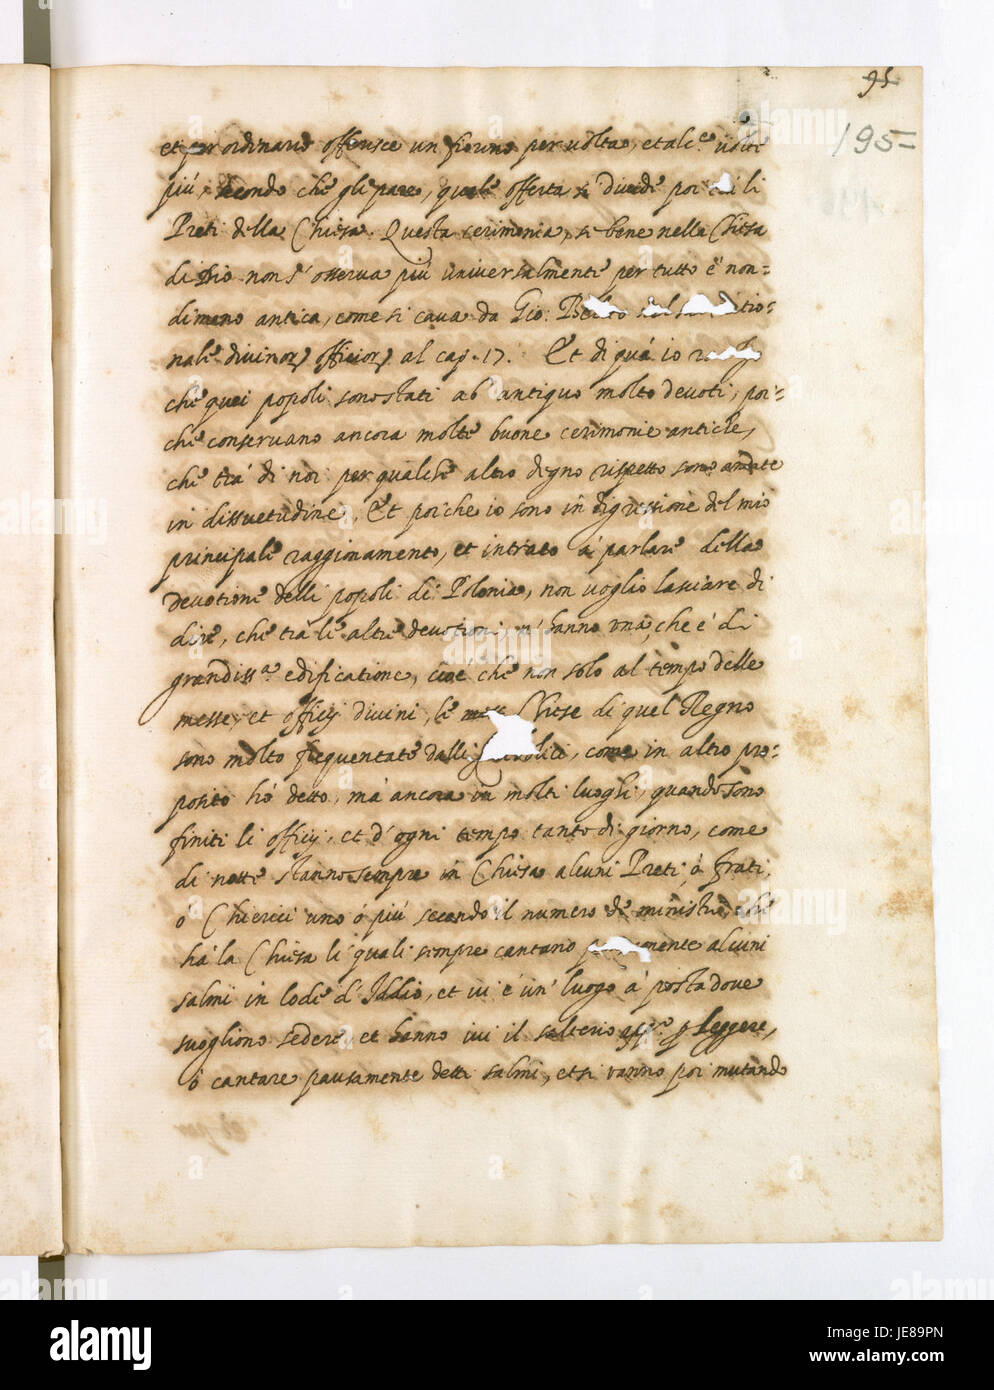 95
195
et per ordinario offerisce un fiorino per uolta, et alc.e uolte
più, secondo che gli pare, quale offerta si diuide poi li
Preti della Chiesa. Questa cerimonia, se bene nella Chiesa
di Dio non s'osserua più uniuersalmente per tutto è non=
dimeno antica, come si caua da Gio:
nale diuinor. officior. al cap. 17. Et di quà io
che quei popoli sono stati ab antiquo molto deuoti, poi=
che conseruano ancora molte buone cerimonie antiche,
che trà di noi per qualche altro degno rispetto sono andate
in dissuetudine, Et poiche io sono in digressione del mio
principale raggionamento, et intrato à parlare della
deuotione delli popoli di Polonia, non uoglio lasciare di
dire, che trà le altre deuotioni, n'hanno una, che è di
grandiss.a edificatione, cioè che non solo al tempo delle
messe, et officij diuini, le Chiese di quel Regno
sono molto frequentate dalli, come in altro pro=
posito hò detto, mà ancora in molti luoghi, quando sono
finiti li officij, et d'ogni tempo tanto di giorno, come
di notte stanno sempre in Chiesa alcuni Preti, ò frati,
ò Chierici uno ò più secondo il numero de ministri, che
hà la Chiesa li quali sempre cantano alcuni
salmi in lode d'Iddio, et ui è un' luogo à posta doue
sogliono sedere, et hanno iui il salterio leggere,
ò cantare pausamente detti salmi, et si uanno poi mutando
alamy
Image ID: JE89PN
www.alamy.com